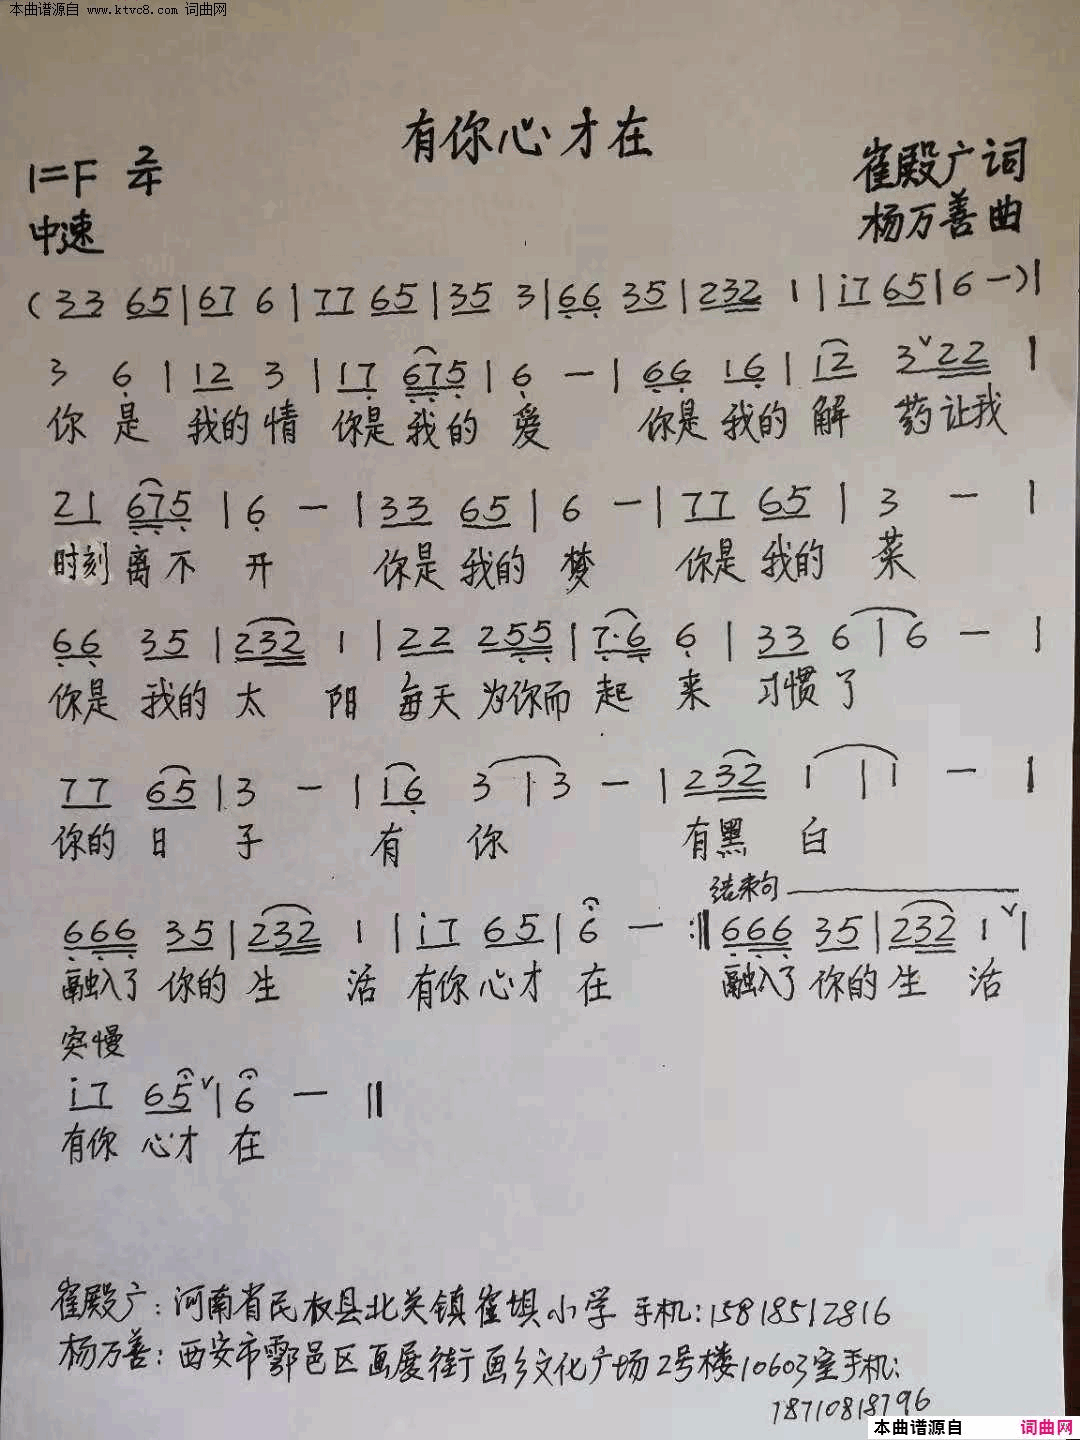 本曲谱源自 www.ktvc8.com 词曲网
有你心才在
1=F 2/4
崔殿广词
中速
杨万善曲
(33 65|67 6|77 65|35 3|66 35|232 1|i7 65|6 —)|
3 6|12 3|17 675|6 —|66 16|12 3ˇ22|
你是 我的情 你是我的 爱 你是我的解 药让我
21 675|6 —|33 65|6 —|77 65|3 —|
时刻离不 开 你是我的 梦 你是我的 菜
66 35|232 1|22 255|7·6 6|33 6|6 —|
你是 我的太 阳 每天为你而 起 来 习惯了
77 65|3 —|16 3|3 —|232 1|1 —|
你的 日 子 有 你 有黑 白
结束句
666 35|232 1|i7 65|6 —:‖666 35|232 1ˇ|
融入了 你的 生 活 有你 心才 在 融入了 你的生 活
突慢
i7 65ˇ|6 —‖
有你 心才 在
崔殿广:河南省民权县北关镇崔坝小学 手机:15818512816
杨万善:西安市鄠邑区画展街画乡文化广场2号楼10603室手机:
18710818796
本曲谱源自 词曲网